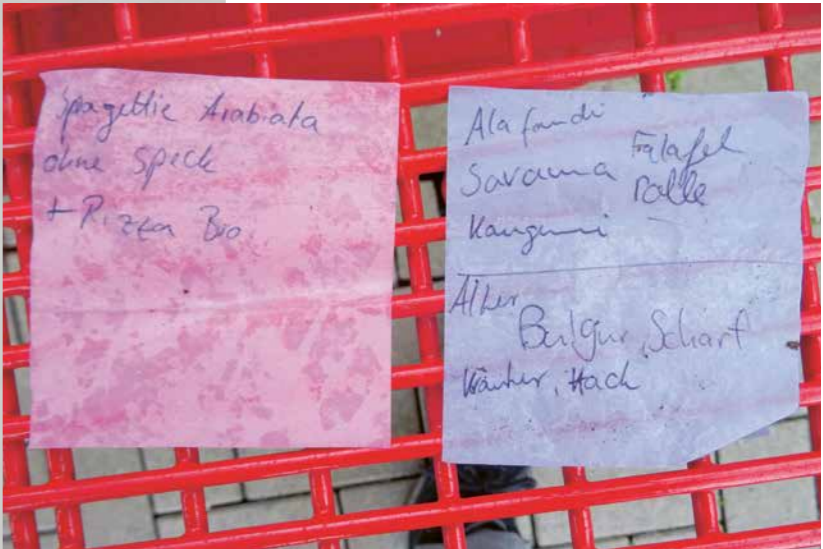 Spagettie Arabiata
ohne Speck
+ Pizza Bio
Alafandi
Savanna Falafel
Rolle
Kangeni
Bulgur, Scharf
Kräuter, Hack